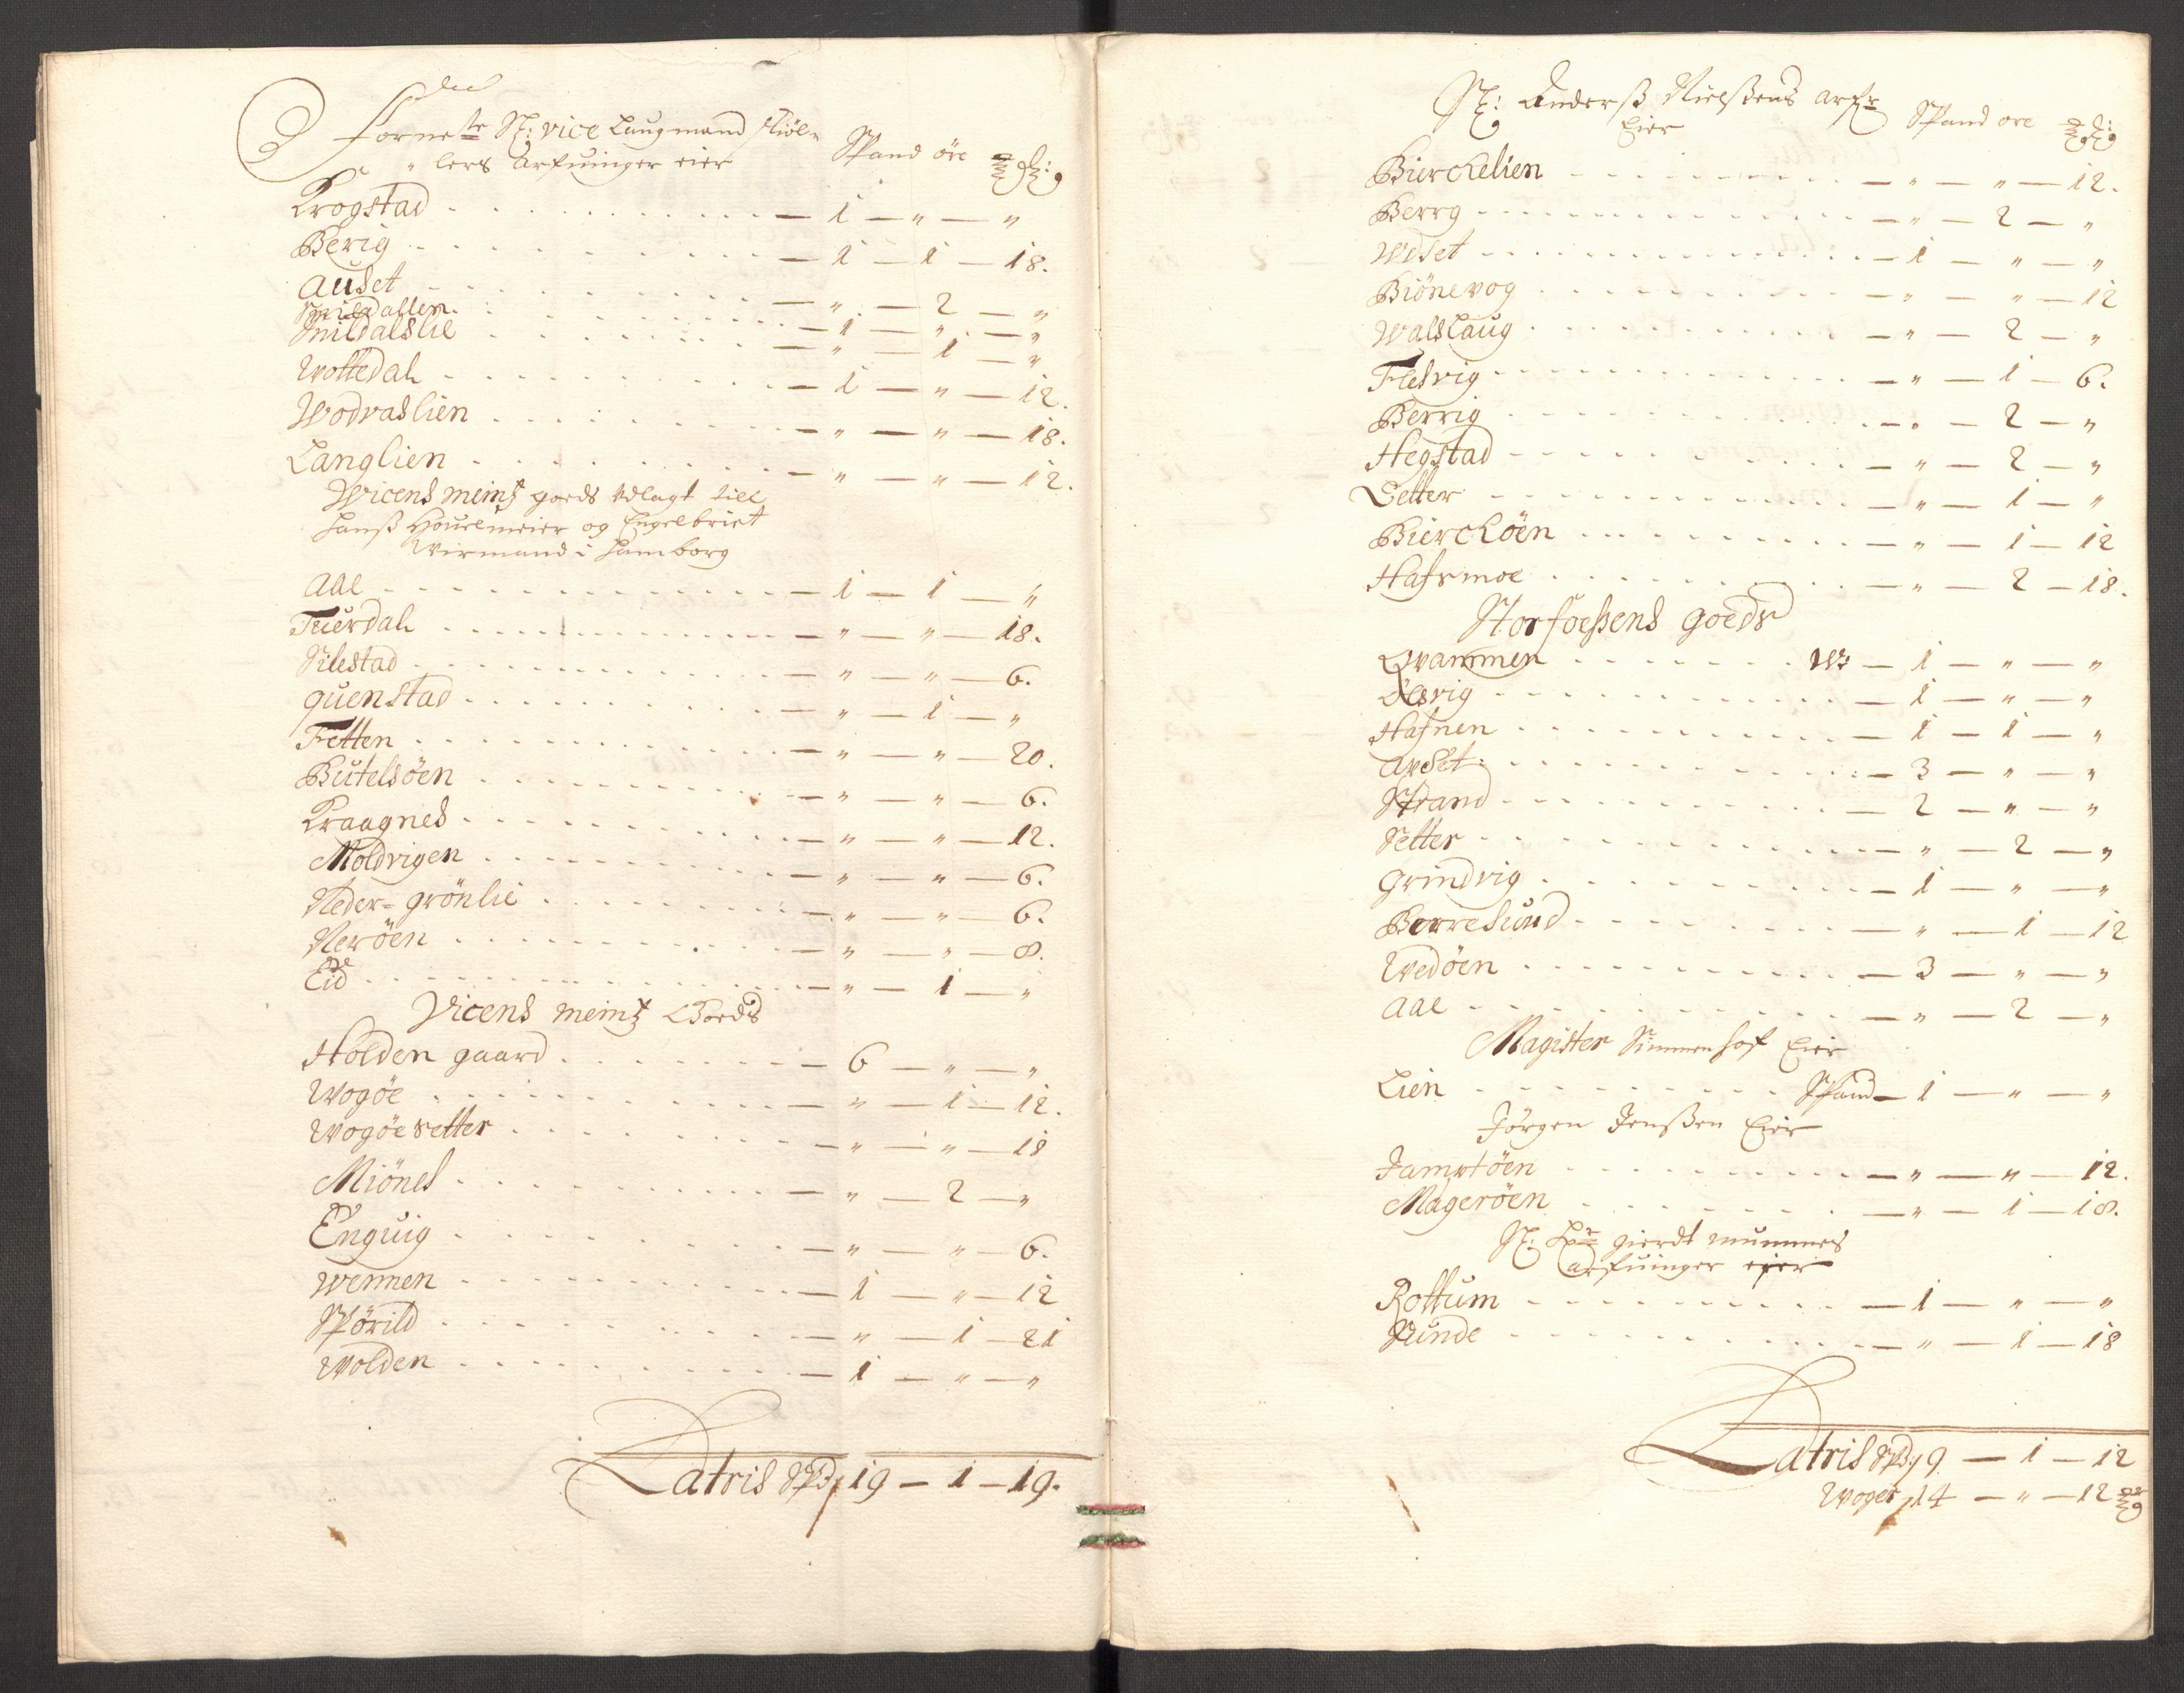 Forne¯te Sl: vice Laugmand Miöl=
lers Arfuinger eier Spand öre
Krogstad - 1 - " - "
Berig - 1 - 1 - 18.
Auset - " - 2 - "
Snildallen - 1 - " - "
Snildalslie - " - 1 - "
Wottedal - 1 - " - 12.
Wodvaslien - " - " - 18.
Langlien - " - " - 12.
Wicens meintz goeds Udlagt till
Hanss Houelmeier og Engelbriet
Wirmand i Hamborg
Aal - 1 - 1 - "
Tuerdal - " - " - 18.
Silestad - " - " - 6.
quenstad - " - 1 - "
Fetten - " - " - 20.
Butelsöen - " - " - 6.
Kraagnes - " - " - 12.
Moldvigen - " - " - 6.
Neder-grönlie - " - " - 6.
Neröen - " - " - 8.
Eide - " - 1 - "
Vicens meintz Goeds
Holden gaard - 6 - " - "
Wogöe - " - 1 - 12.
Wogöe setter - " - " - 18
Miönes - " - 2 - "
Enguig - " - " - 6.
Wennen - 1 - " - 12
Spörild - " - 1 - 21
Wolden - 1 - " - "
Latris Spd, 19 - 1 - 19.
Sl: Anderss Nielssens arfr
Eier Spand ore
Bierckelien - " - " - 12.
Berrg - " - 2 - "
Wdset - 1 - " - "
Biönevog - " - " - 12
Walslaug - " - 2 - "
Flesvig - " - 1 - 6.
Berrig - " - 2 - "
Hegstad - " - 2 - "
Setter - " - 1 - "
Biercköen - " - 1 - 12
Hafsmoe - " - 2 - 18.
Storfoessens goeds
Qvammen W: - 1 - " - "
Olsvig - 1 - " - "
Hafnen - 1 - 1 - "
Arset - 3 - " - "
Strand - 2 - " - "
Setter - " - 2 - "
Grindvig - 1 - " - "
Berresund - " - 1 - 12
Wedöen - 3 - " - "
Aal - " - 2 - "
Magister Simmenhof Eier
Lien Spand - 1 - " - "
Jörgen Jenssen Eier
Jamtöen - " - " - 12.
Mageröen - " - 1 - 18.
Sl: Hr gierdt mummes
arfuinger eier
Rottum - 1 - " - "
Sunde - " - 1 - 18
Latris Spd, 9 - 1 - 12
Woger, 14 - " - 12